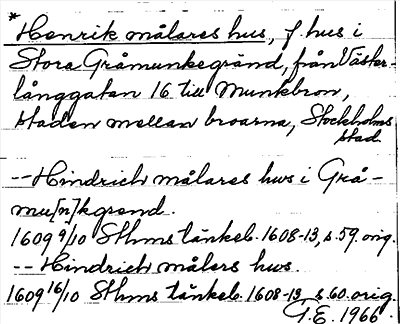 * Henrik målares hus, f. hus i
Stora Gråmunkegränd, från Väster-
långgatan 16 till Munkbron,
staden mellan broarna, Stockholms
stad
-- Hindrich målares hws i Grå-
mu[n]kgrend.
1609 9/10 Sthms tänkeb. 1608-13, s. 59. orig.
-- Hindrich målers hws.
1609 16/10 Sthms tänkeb. 1608-13, s. 60. orig.
T.E. 1966.